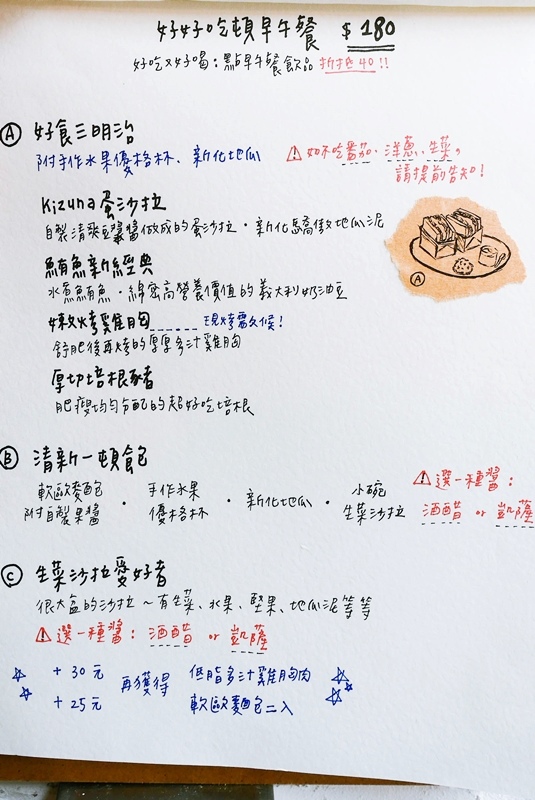 好好吃頓早午餐 $180
好吃又好喝：點早午餐飲品 折抵40!!
Ⓐ 好食三明治
附手作水果優格杯、新化地瓜
⚠ 如不吃番茄、洋蔥、生菜，
請提前告知!
Kizuna蛋沙拉
自製清爽豆漿醬做成的蛋沙拉・新化馬高傲地瓜泥
鮪魚新經典
水煮鮪魚・綿密高營養價值的義大利奶油豆
辣烤雞胸 現烤需久候!
舒肥後再烤的厚厚多汁雞胸
厚切培根豬
肥瘦均勻分配的超好吃培根
A
Ⓑ 清新一頓飽
軟歐麥包
附自製果醬
・
手作水果
優格杯
・新化地瓜・
小碗
生菜沙拉
⚠ 選一種醬：
酒醋 or 凱薩
Ⓒ 生菜沙拉愛好者
很大盆的沙拉～有生菜、水果、堅果、地瓜泥等等
⚠ 選一種醬：酒醋 or 凱薩
+30元 再獲得 低脂多汁雞胸肉
+25元 軟歐麵包二入